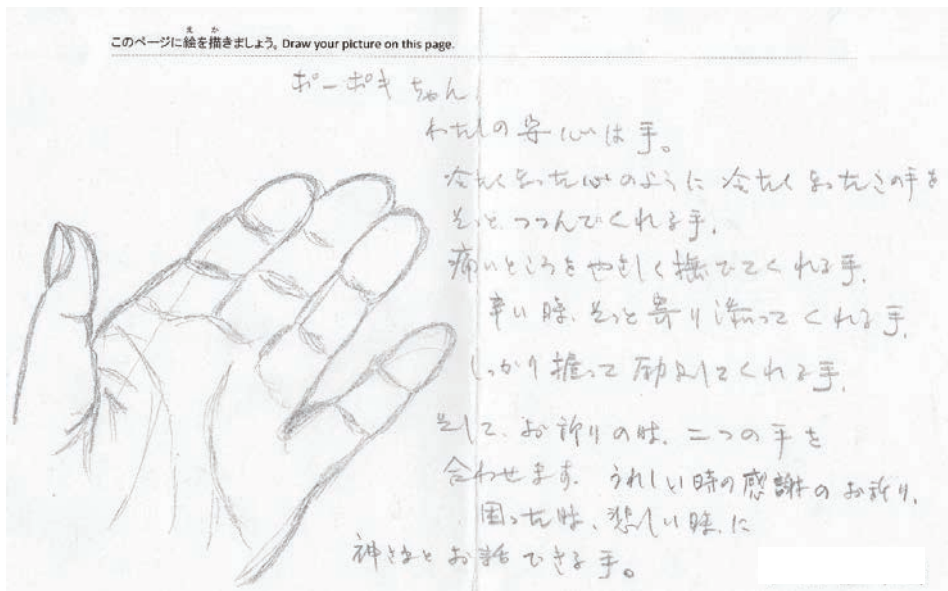 このページに絵を描きましょう。Draw your picture on this page.
ポーポキちゃん、
わたしの安心は手。
冷たくなった心のように冷たくなったこの手を
そっとつつんでくれる手。
痛いところをやさしく撫でてくれる手。
辛い時、そっと寄り添ってくれる手。
しっかり握って励ましてくれる手。
そして、お祈りの時、二つの手を
合わせます。うれしい時の感謝のお祈り、
困った時、悲しい時、に
神さまとお話できる手。